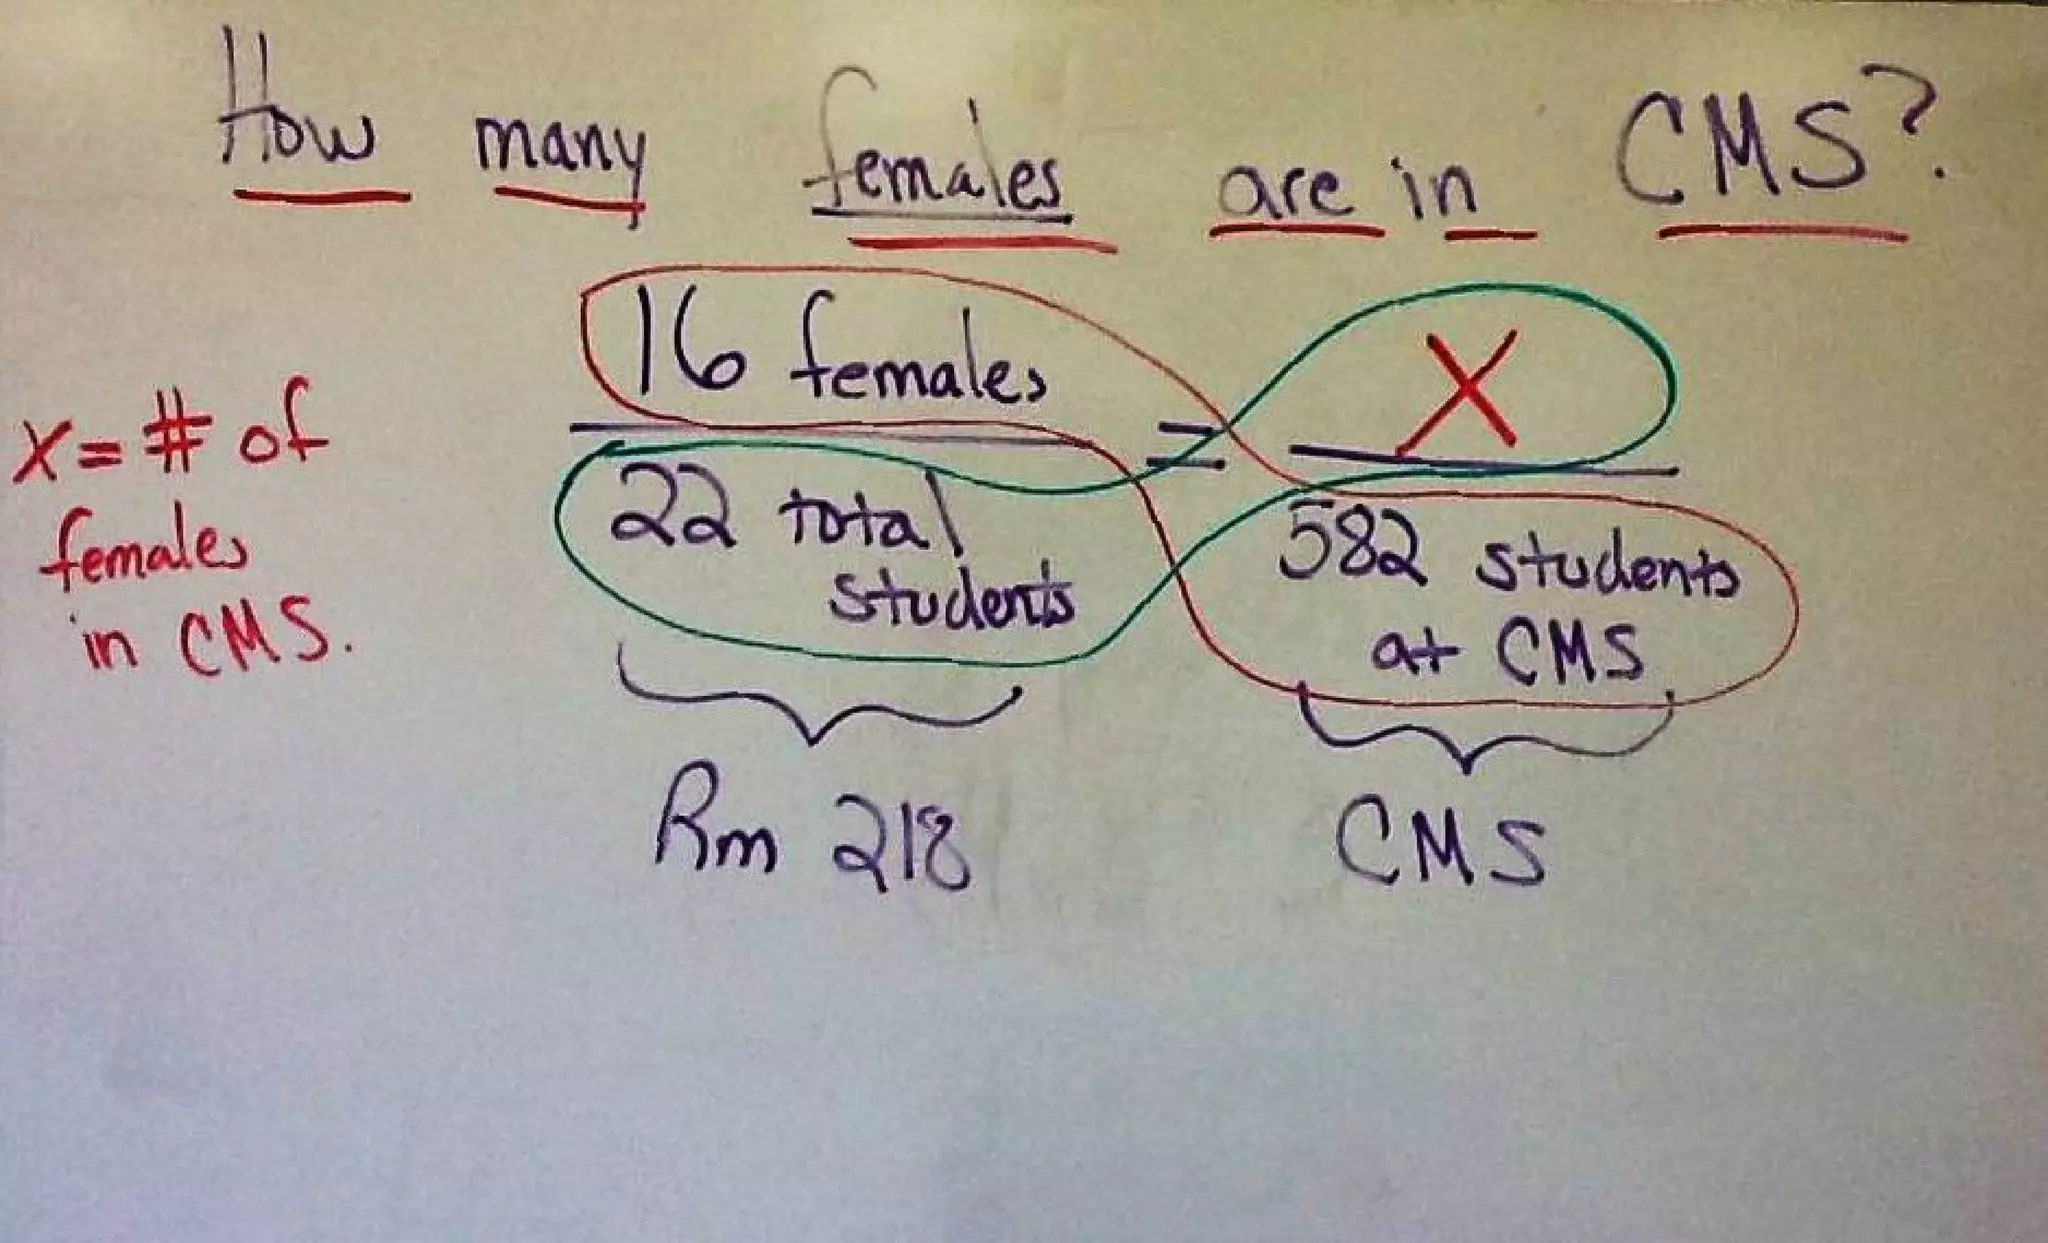 How many females are in CMS?
16 females = X
22 total students
582 students at CMS
x = # of
females
in CMS.
Rm 218
CMS